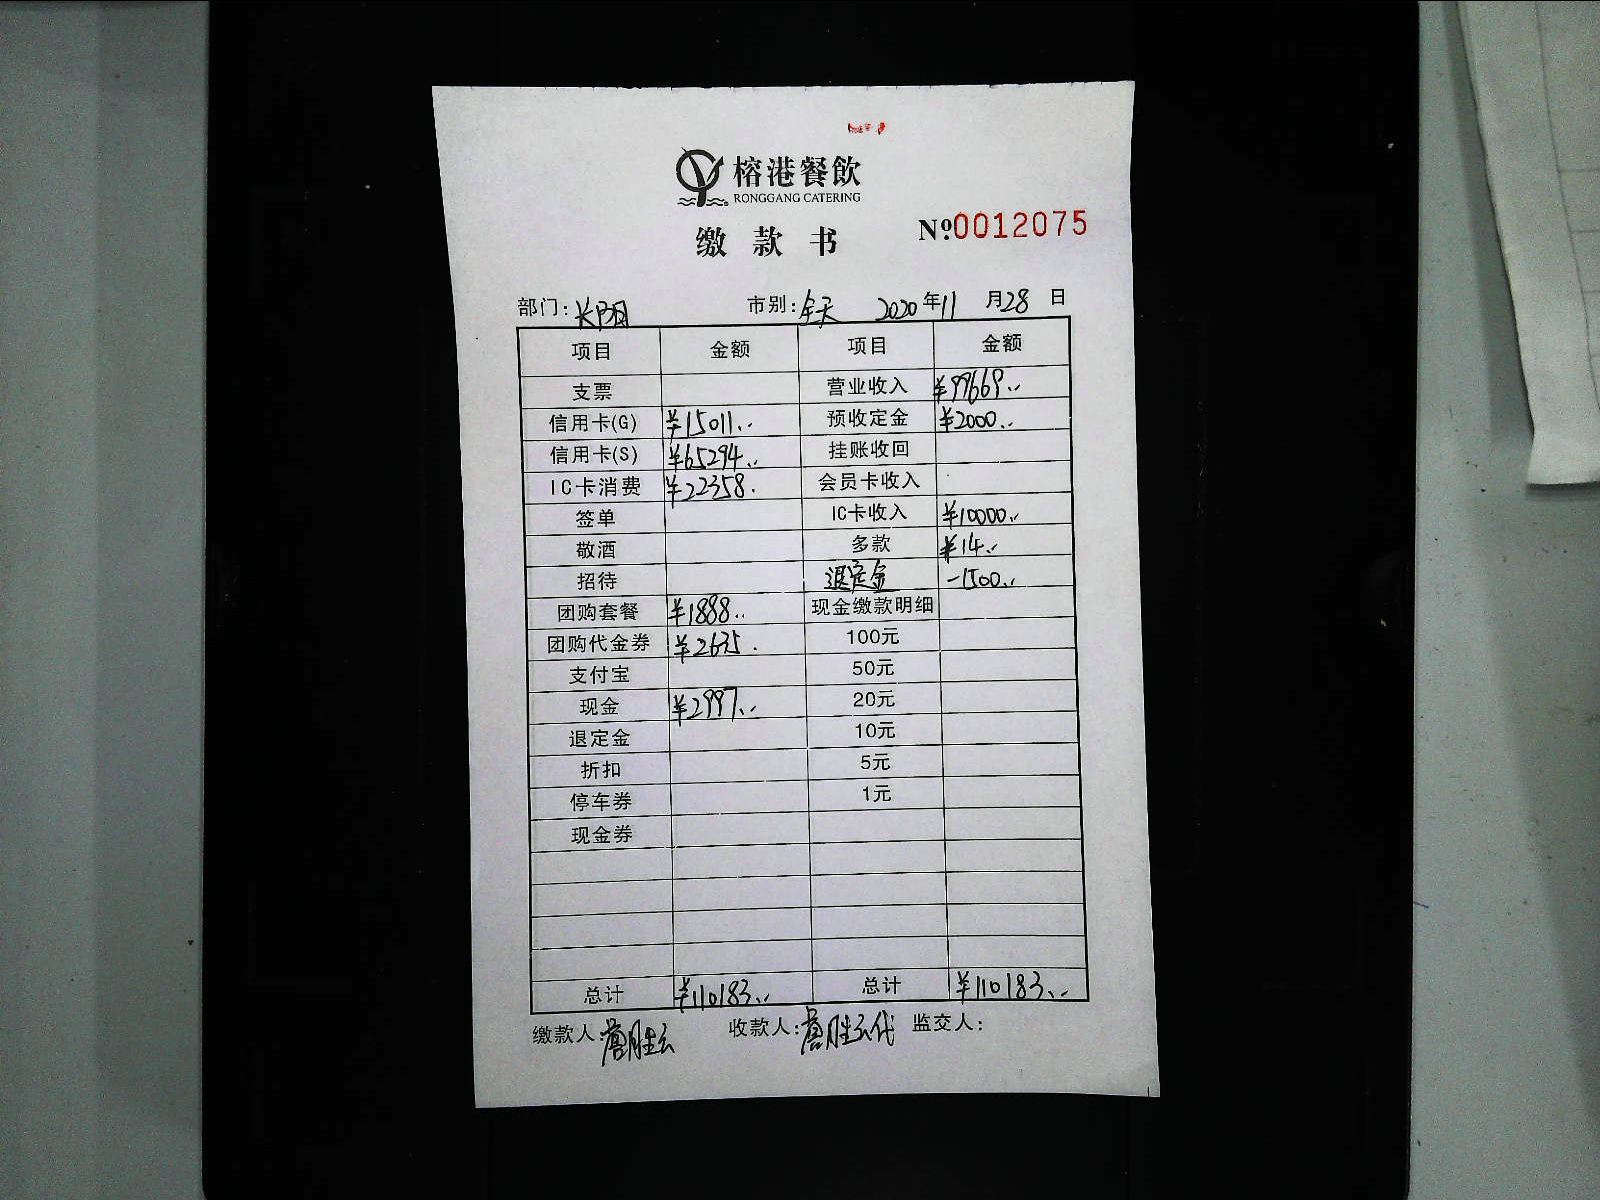 榕港餐飲
RONGGANG CATERING
缴款书 №0012075
部门: 长阳 市别: 全天 2020年11月28日
项目 金额 项目 金额
支票 营业收入 ¥99669..
信用卡(G) ¥15011.. 预收定金 ¥2000..
信用卡(S) ¥65294.. 挂账收回
IC卡消费 ¥22358. 会员卡收入
签单 IC卡收入 ¥10000..
敬酒 多款 ¥14..
招待 退定金 -1500..
团购套餐 ¥1888.. 现金缴款明细
团购代金券 ¥2635. 100元
支付宝 50元
现金 ¥2997.. 20元
退定金 10元
折扣 5元
停车券 1元
现金券
总计 ¥110183.. 总计 ¥110183..
缴款人: 收款人: 监交人: